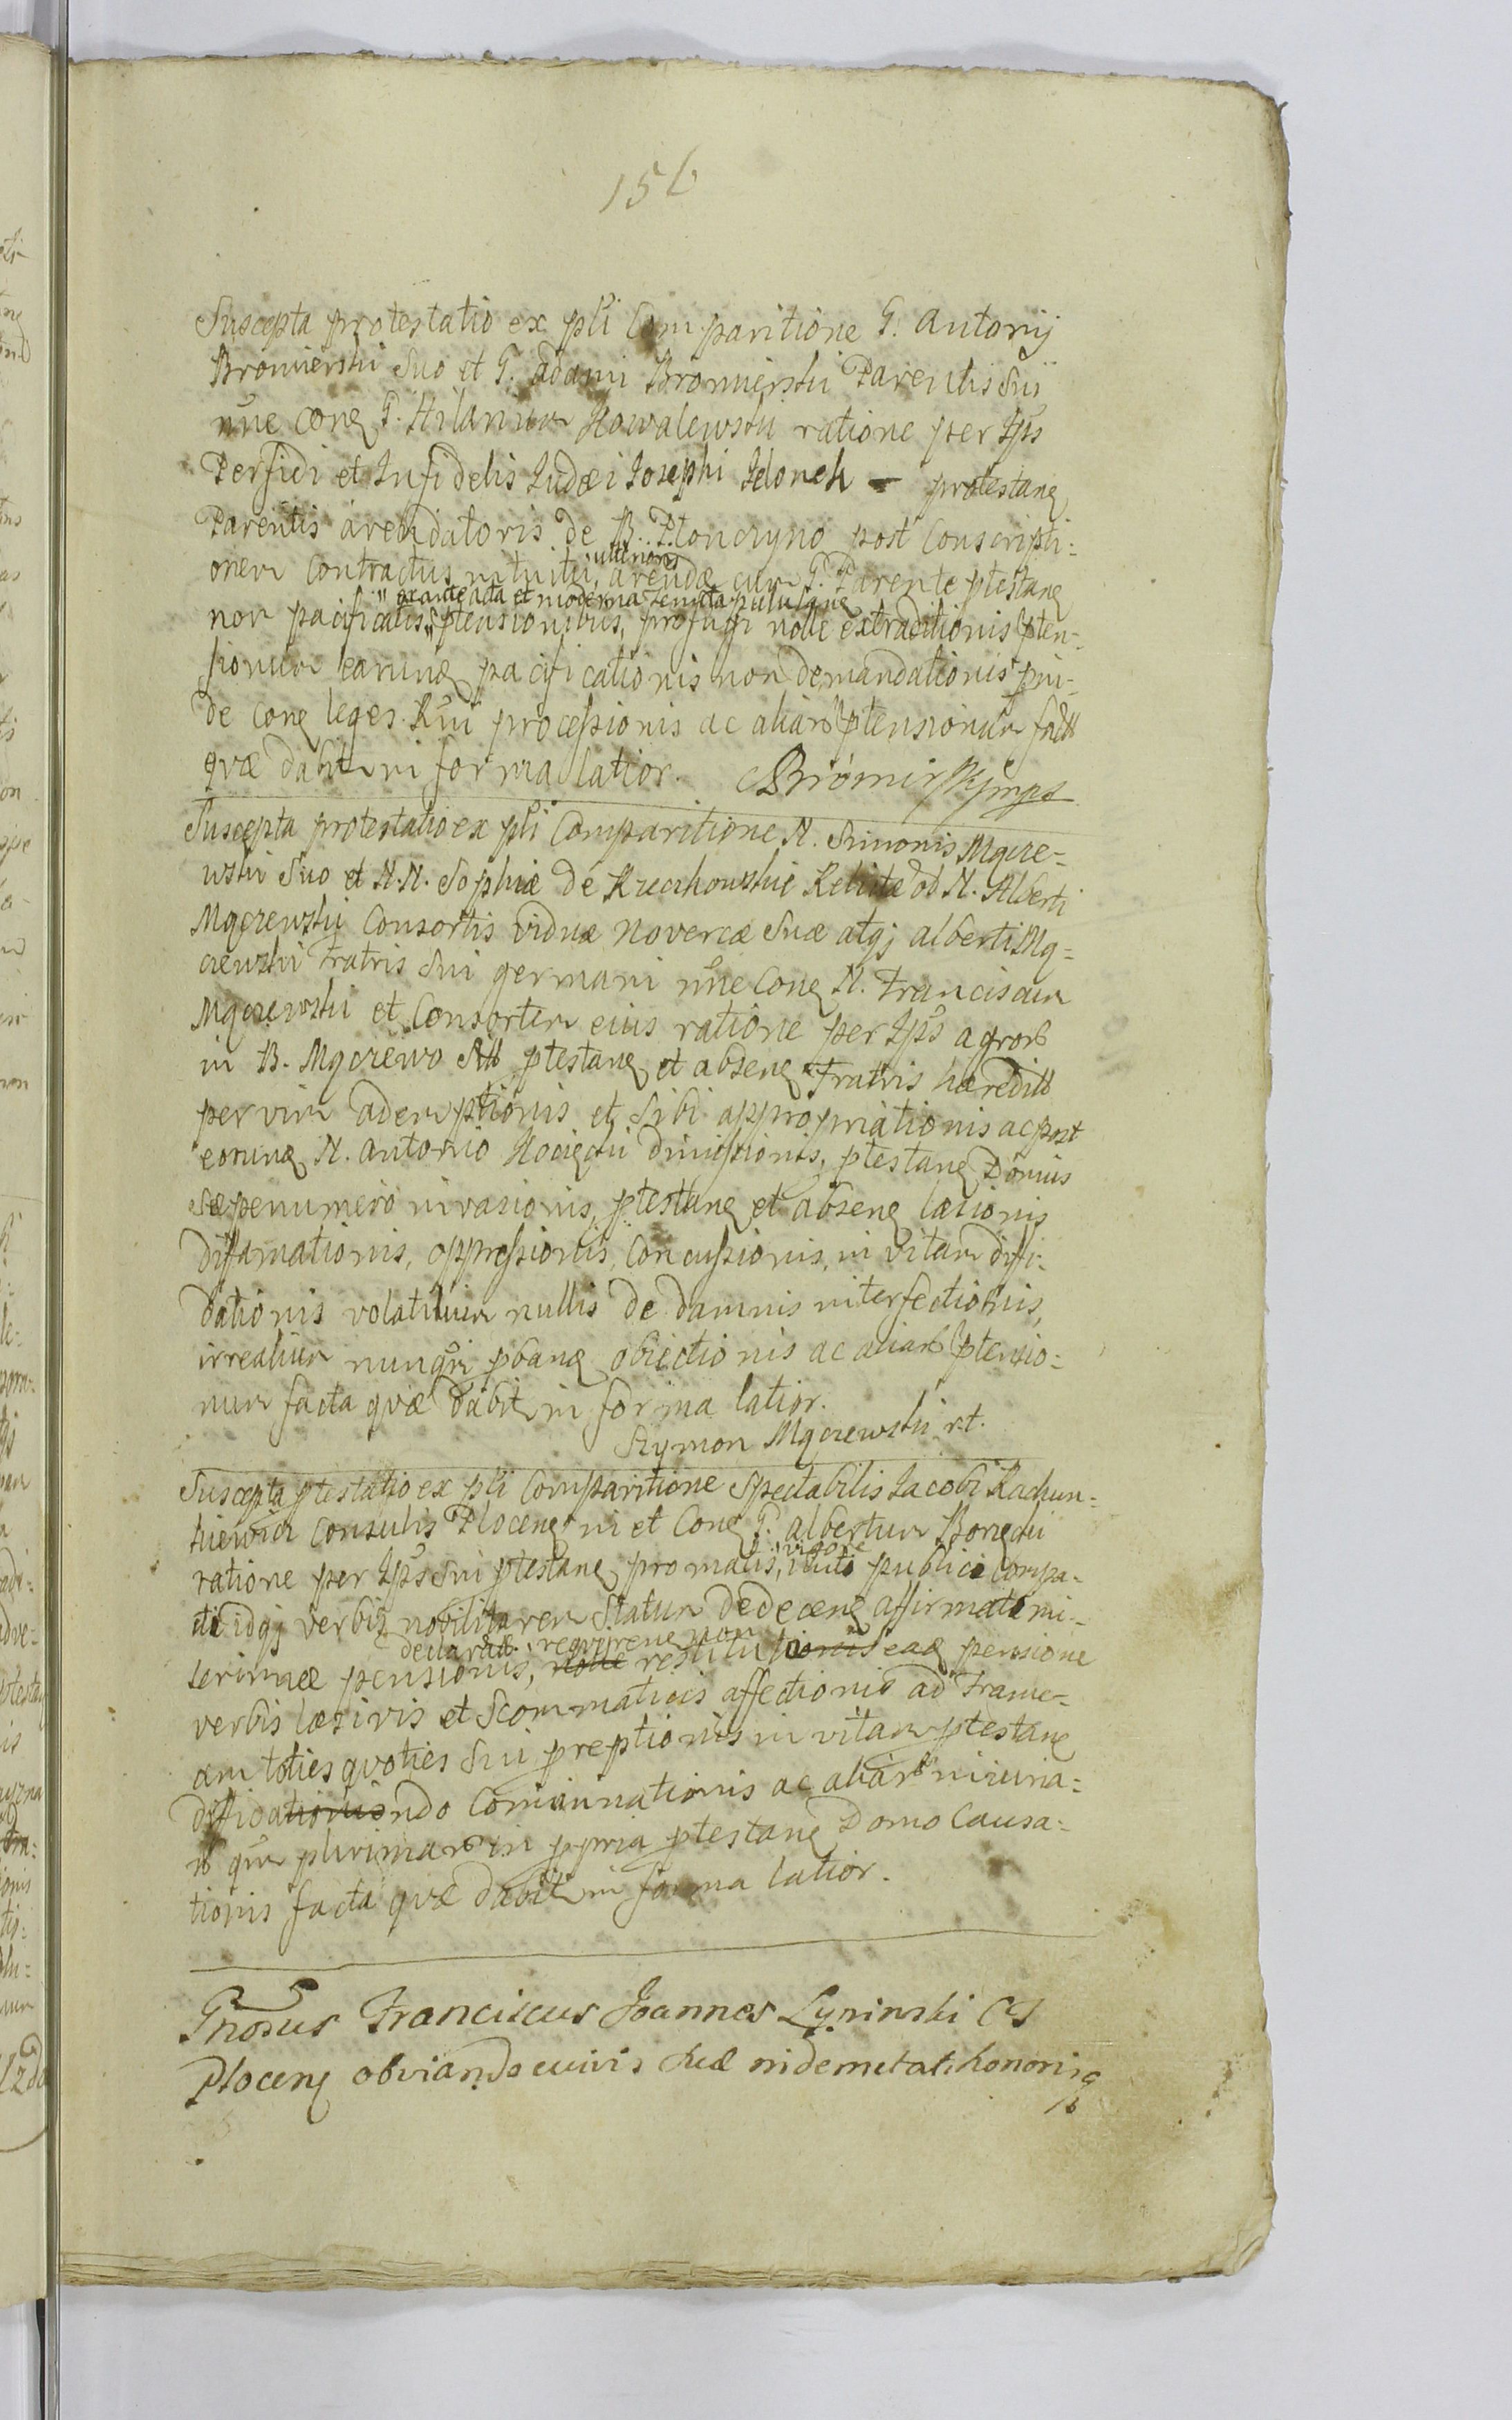 156
Suscepta protestatio ex pti Comparitione G. Antonij
Bromierski Suo et G. Adami Bromierski Parentis Sui
nne conq G. Hilarium Kowalewski ratione per Ips
Perfidi et Infidelis Judæi Josephi Jelonek - protestanq
Parentis arendatoris de B. Płonczyno post Conscripti-
onem Contractus intuitu ulterioris arendæ cum G. Parente ptestanq
non pacificatis exanteacta et moderna tenuta pptensionibus, profugi nolle extraditionis pten-
sionum earumq pacificationis non demandationis
de conq leges Rni processionis ac aliarb ptensionum factt
qvæ dabitur in forma latior. ABromirski mps
Suscepta protestatio ex pti Comparitione N. Simonis Mącze-
wski Suo et N.N. Sophiæ de Kuczkowskie Relictæ ob N. Alberti
Mączewski Consortis viduæ Novercæ Suæ atqj Alberti Mą-
czewski Fratris Sui germani nne Conq N. Franciscum
Mączewski et Consortem eius ratione per Ips agrorb
in B. Mączewo Stt ptestanq et absenq Fratris hæreditt
per vim ademptionis et Sibi appropriationis ac post
eorumq N. Antonio Kocięcki dimissionis, ptestanq Domus
Sæpenumero invasionis, ptestanq et absenq læsionis
diffamationis, oppressionis, Concussionis, in vitam diffi-
dationis volatilium nullis de damnis interfectionis,
irrealium nunqvi pbanq obiectionis ac aliarb ptensio-
num facta qvæ dabit in forma latior.
Szymon Mączewski rt.
Suscepta ptestatio ex pti Comparitione Spectabilis Jacobi Rachun-
kiewicz Consulis Płocenq ni et Conq G. Albertum Boryęcki
ratione per Ips Sui ptestanq pro malis, vigore publici Compa-
ti idqj verbis nobilitarem Statum dedecenq affirmato mi-
serimæ pensionis, declaratæ, reqvirenq non nolle restitutionis eaq pensione
verbis læsivis et Scommaticis affectionis ad Frame-
am toties qvoties Sui preptionis in vitam ptestanq
diffidationis ndo Comminationis ac aliarb iniuria-
rb qm plurimarb in ppria ptestanq Domo Causa-
tionis facta qvæ dabit in forma latior.
Gnosus Franciscus Joannes Łyzinski CS
Płocenq obviando cuivis Suæ indemnetati honoriq